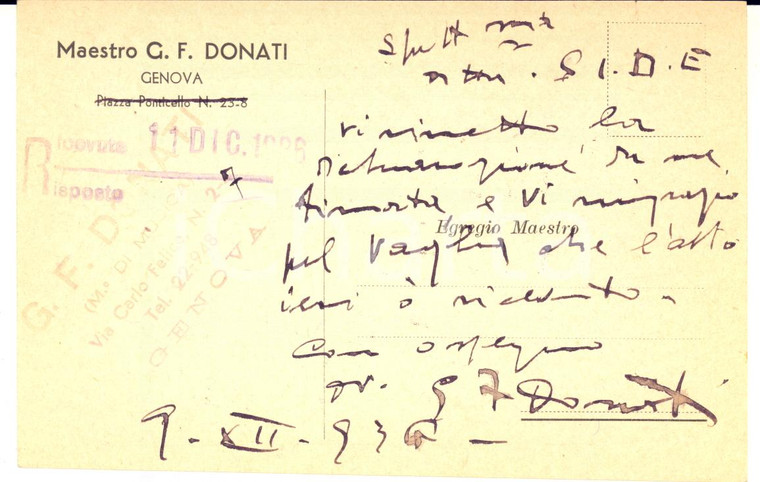 Maestro G. F. DONATI
GENOVA
Piazza Ponticello N. 23-8
Ricevuta 11 DIC. 1936
Risposto
G. F. DONATI
(M.o Di MUSICA)
Via Carlo Felice N. 2-7
Tel. 22-948
GENOVA
Spett
Ditta S I. D. E
vi rimetto la
dichiarazione da me
firmata e vi ringrazio
Egregio Maestro
pel vaglia che l'altro
ieri ò ricevuto -
Con ossequio
G F Donati
9 - XII - 936 -